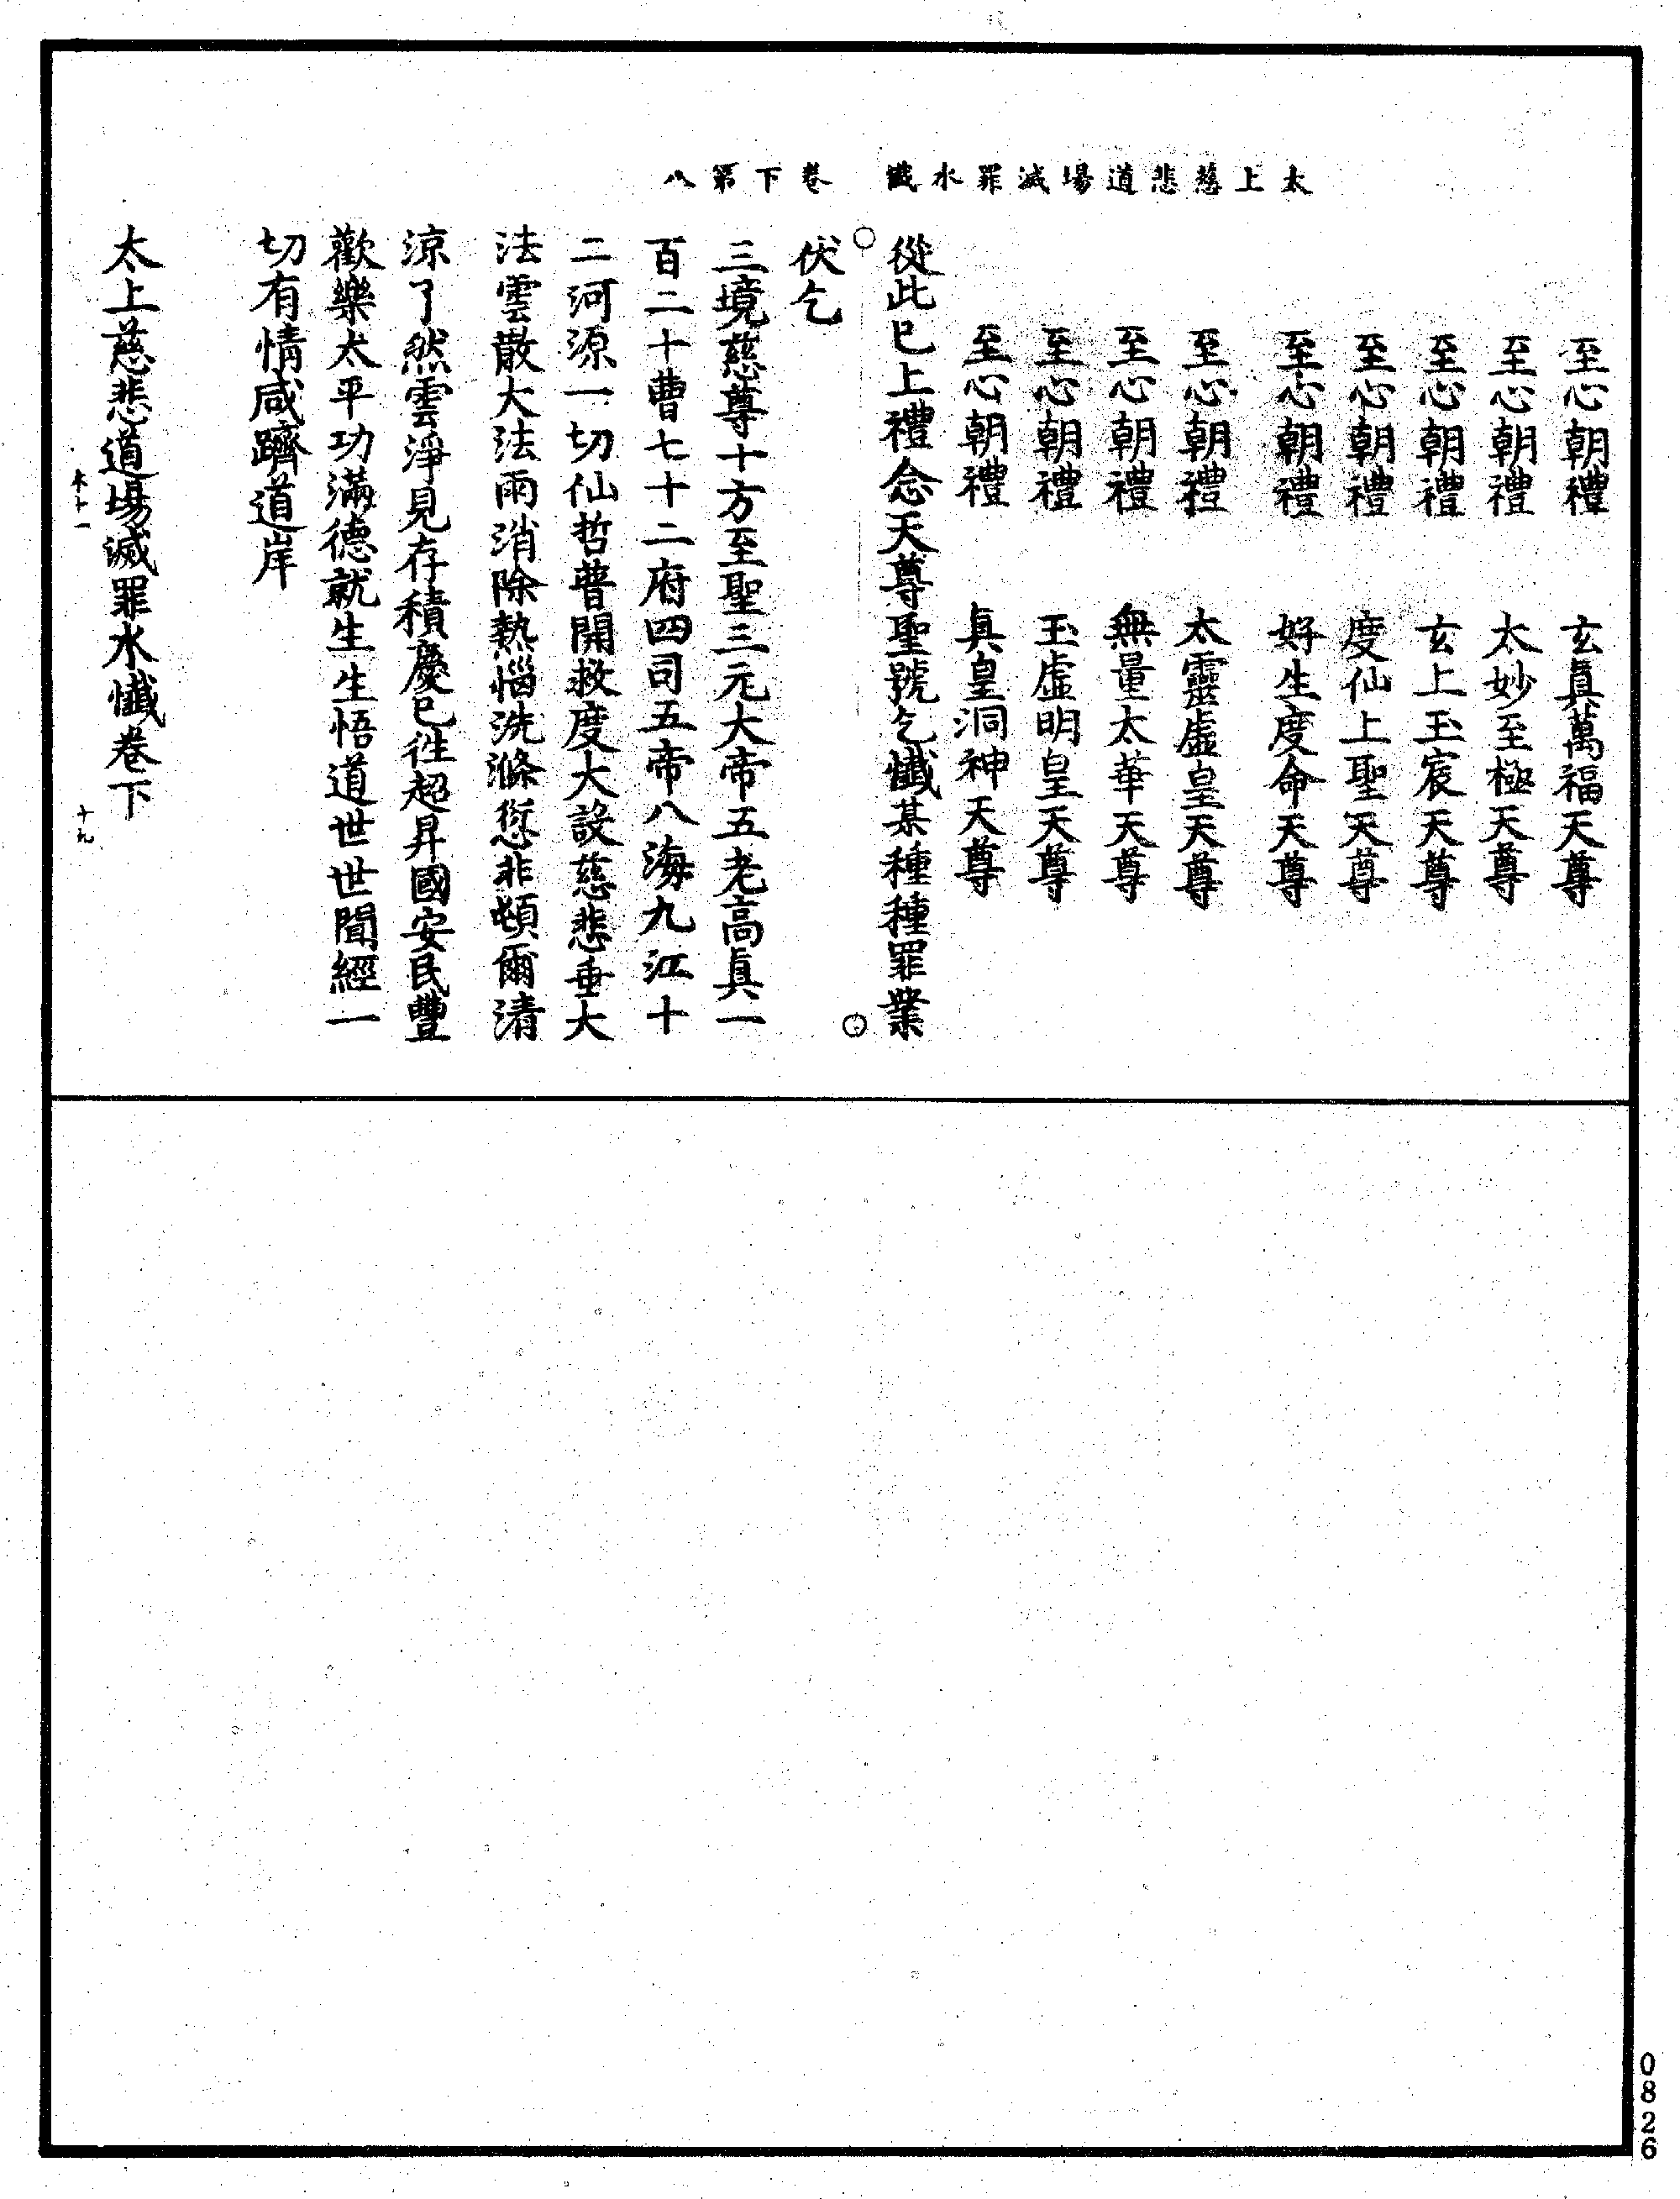 太上慈悲道場滅罪水懺　卷下第八
至心朝禮　玄眞萬福天尊
至心朝禮　太妙至極天尊
至心朝禮　玄上玉宸天尊
至心朝禮　度仙上聖天尊
至心朝禮　好生度命天尊
至心朝禮　太靈虛皇天尊
至心朝禮　無量太華天尊
至心朝禮　玉虛明皇天尊
至心朝禮　眞皇洞神天尊
從此已上禮念天尊聖號乞懺某種種罪業
伏乞
三境慈尊十方至聖三元大帝五老高眞一
百二十曹七十二府四司五帝八海九江十
二河源一切仙哲普開救度大設慈悲垂大
法雲散大法雨消除熱惱洗滌愆非頓爾清
涼了然雲淨見存積慶已徃超昇國安民豐
歡樂太平功滿德就生生悟道世世聞經一
切有情咸躋道岸
太上慈悲道場滅罪水懺卷下
十一
十九
0826